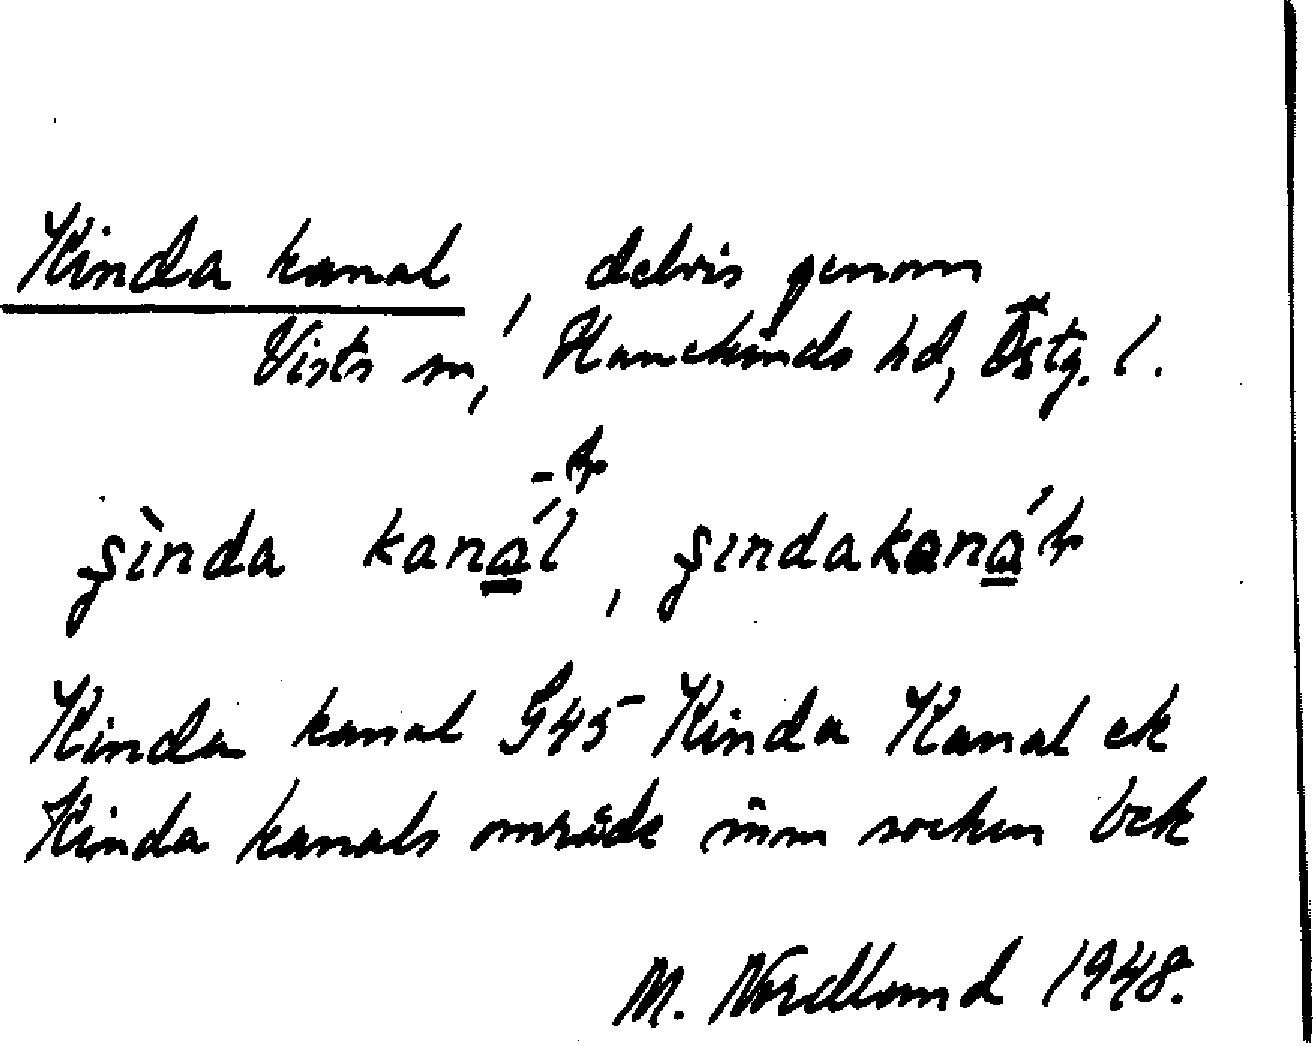 Kinda kanal, delvis genom
Vists sn, Hanekinds hd, Östg. l.
-ɫ
ʂìnda kaná̱l, ʂındakaná̱ɫ
Kinda kanal G45 Kinda Kanal ek
Kinda kanals område inom socken Eck
M. Nordlund 1948.